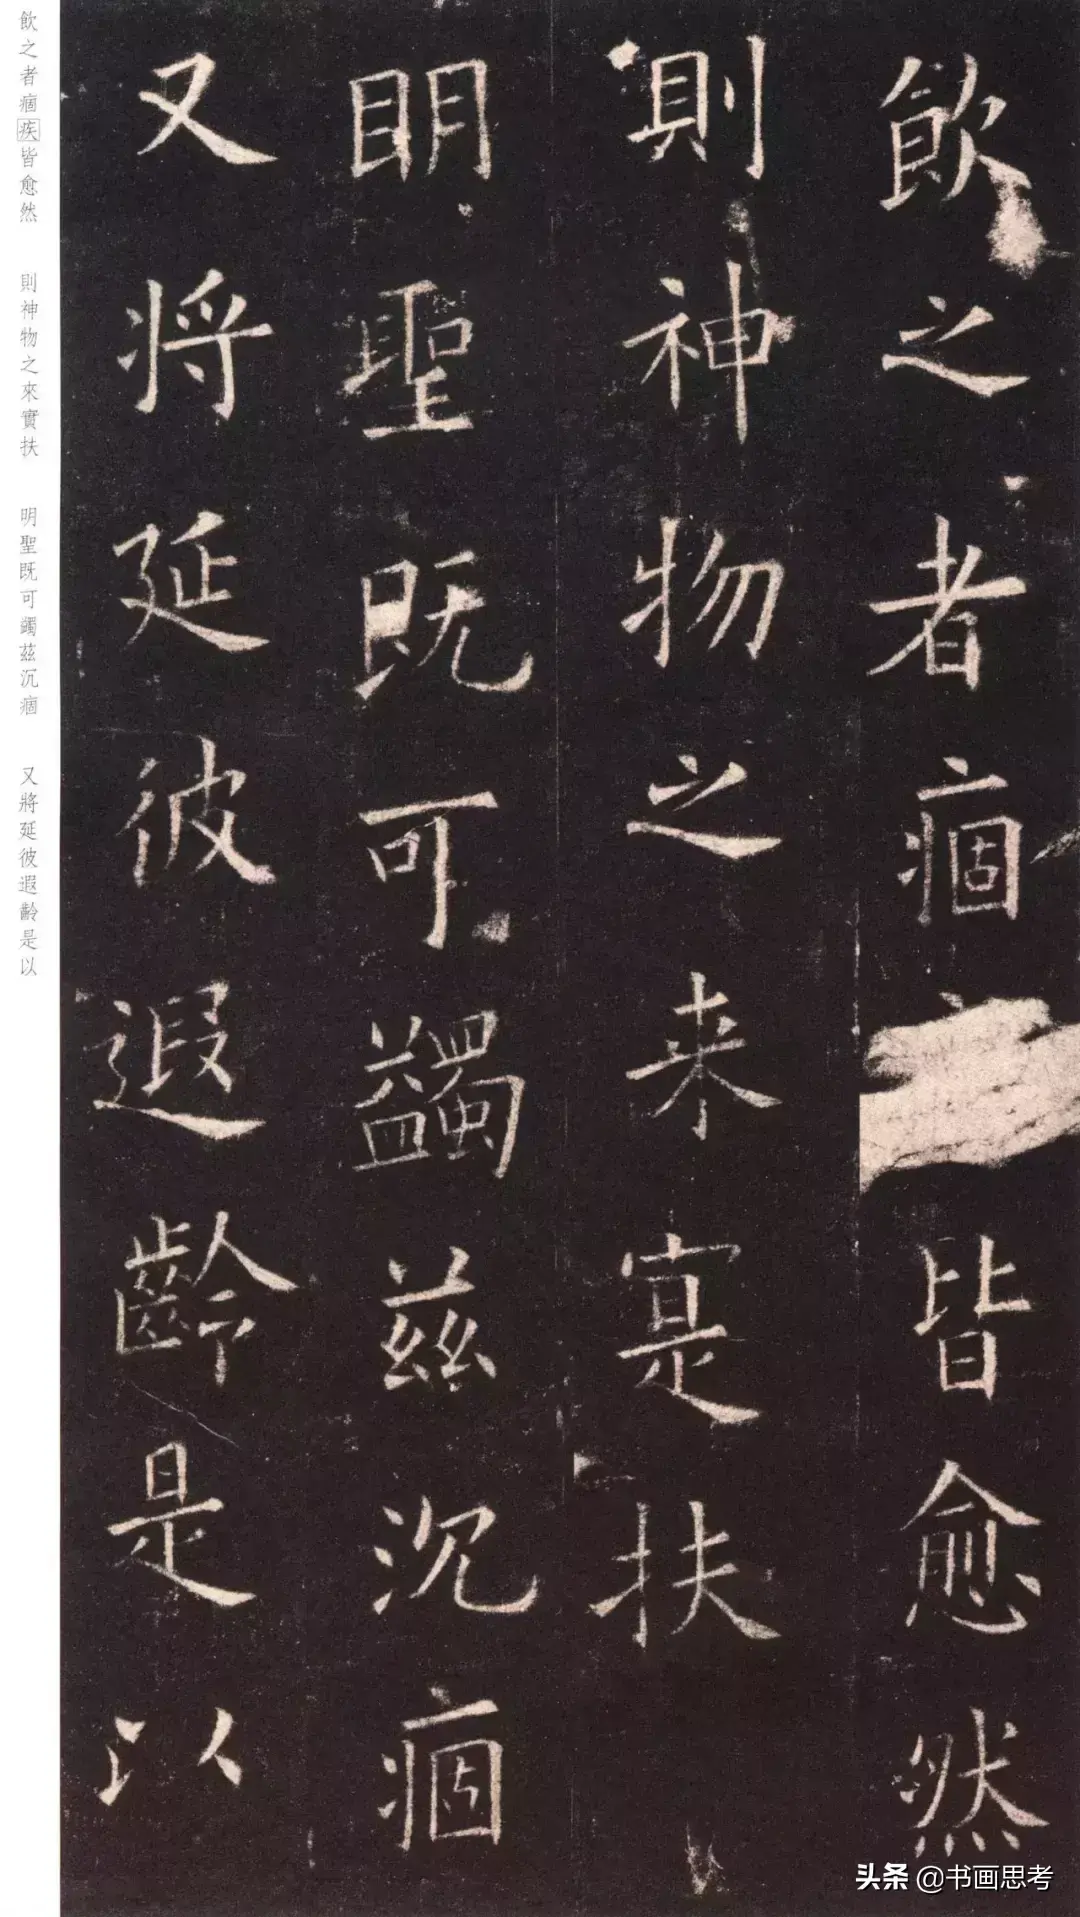 飲之者痼皆愈然
則神物之来寔扶
明聖既可蠲茲沉痼
又将延彼遐齡是以
飲之者痼疾皆愈然
則神物之來實扶
明聖既可蠲茲沉痼
又將延彼遐齡是以
头条 @书画思考